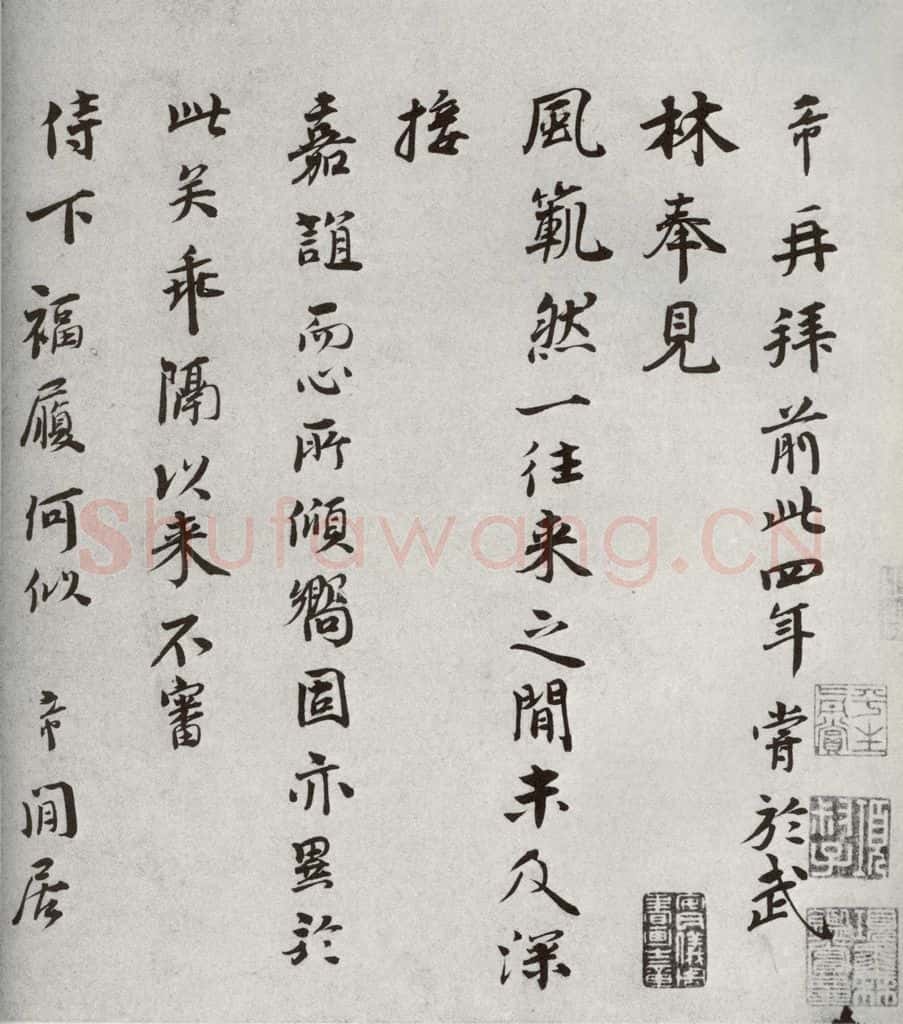 芾再拜前此四年嘗於武
林奉見
風範然一往来之間未及深
接
嘉誼而心所傾嚮固亦異於
此矣乖隔以来不審
侍下福履何似 芾閒居
平生真賞
安儀周書畫之章
Shufawang.CN